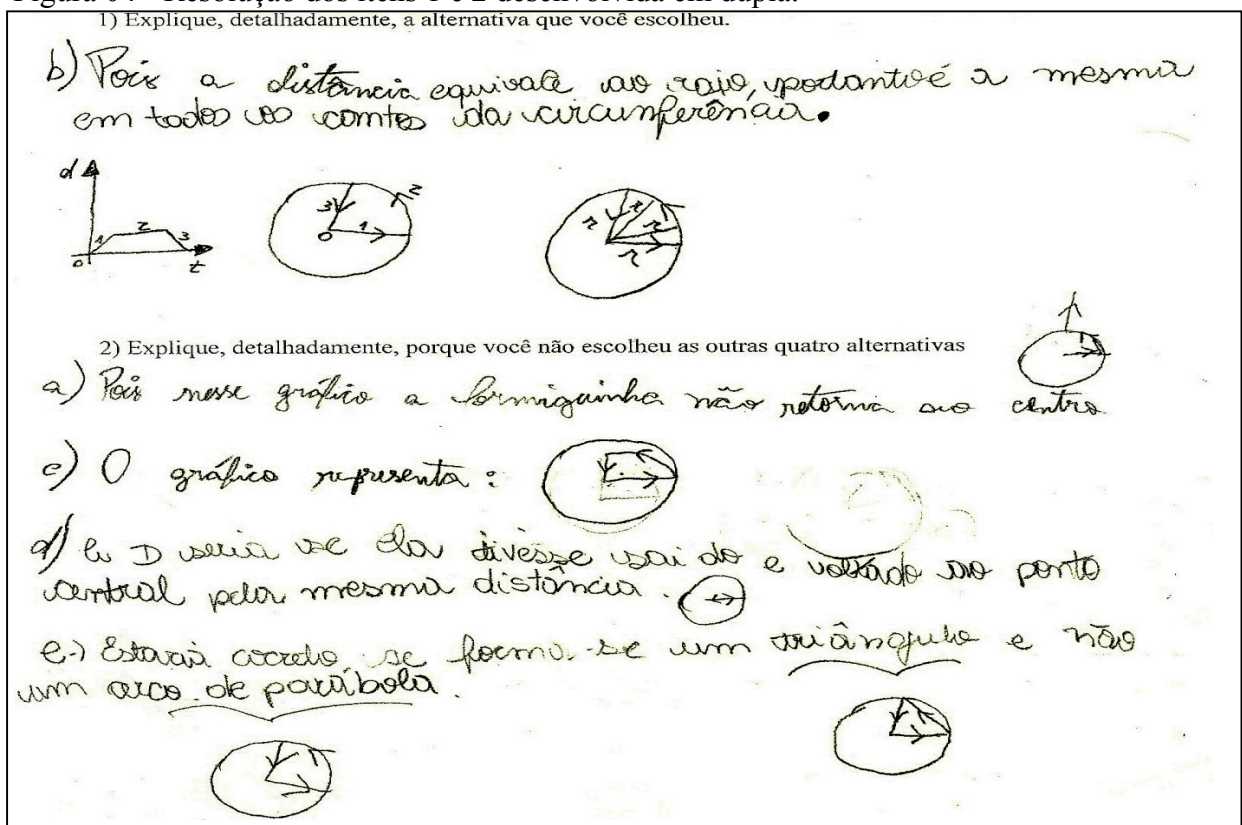 1) Explique, detalhadamente, a alternativa que você escolheu.
b) Pois a distância equivale ao raio, podanto é a mesma
em todos os contos da circunferência.
d
1 2 3
0 t
3 2
0 1
r r r
r
2) Explique, detalhadamente, porque você não escolheu as outras quatro alternativas
a) Pois nesse gráfico a formiguinha não retorna ao centro
c) O gráfico representa:
d) a D seria se ela tivesse saido e voltado ao ponto
central pela mesma distância.
e-) Estaria correto se forma-se um triângulo e não
um arco de parábola.